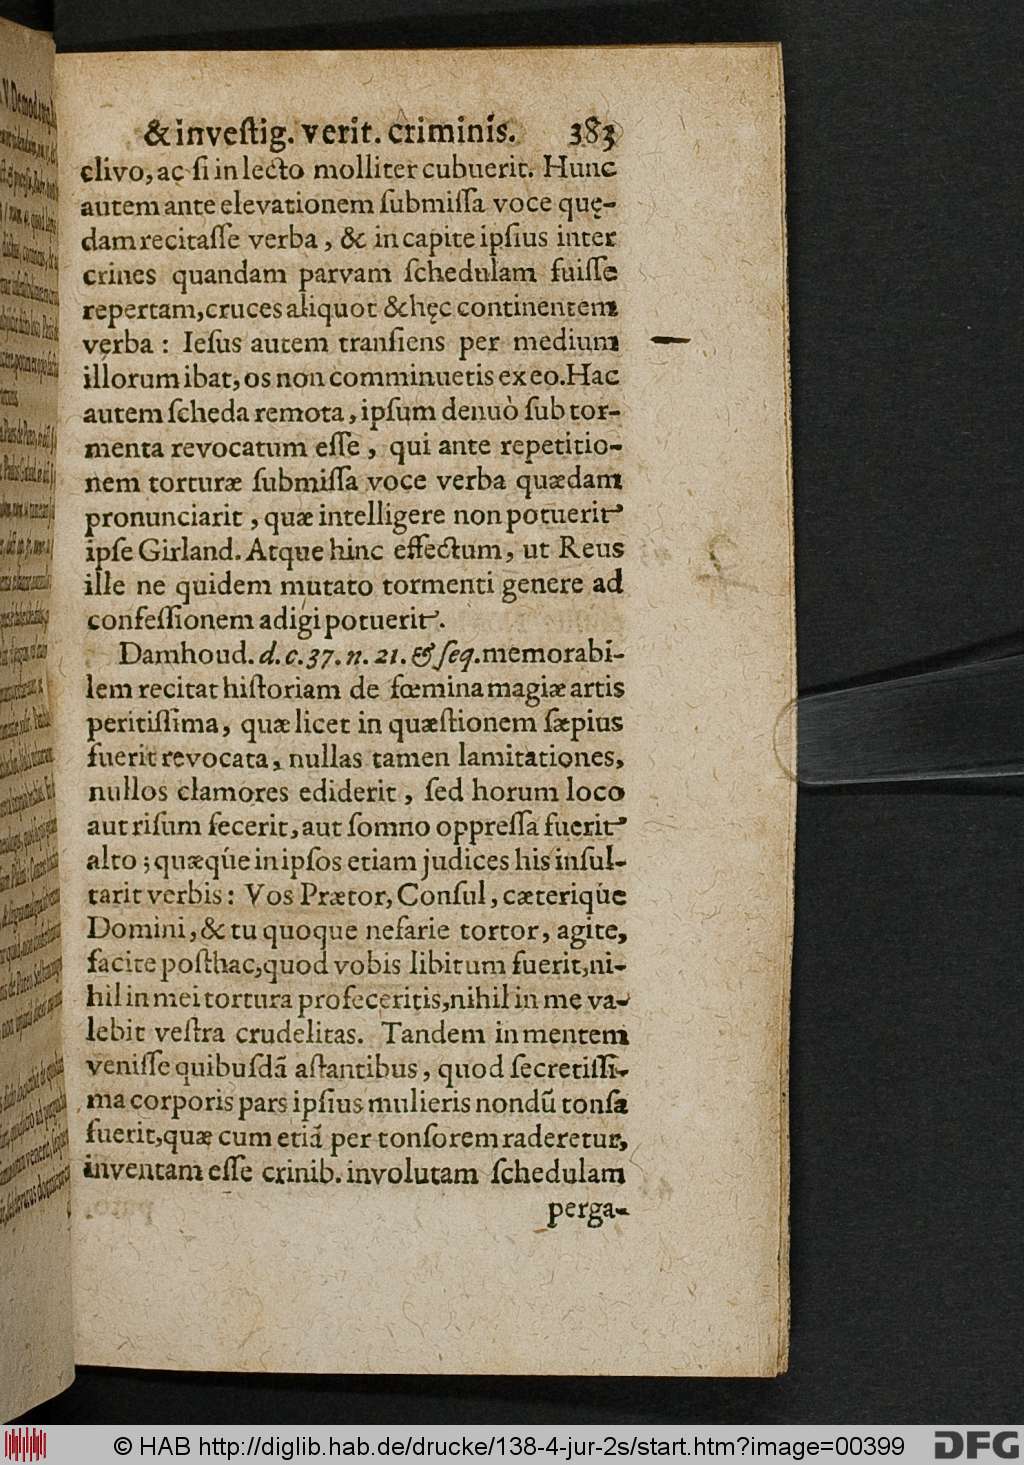 & inveſtig. verit. criminis. 383
clivo, ac ſi in lecto molliter cubuerit. Hunc
autem ante elevationem ſubmiſſa voce quę-
dam recitaſſe verba, & in capite ipſius inter
crines quandam parvam ſchedulam fuiſſe
repertam, cruces aliquot & hęc continentem
verba: Ieſus autem tranſiens per medium
illorum ibat, os non comminuetis ex eo. Hac
autem ſcheda remota, ipſum denuò ſub tor-
menta revocatum eſſe, qui ante repetitio-
nem torturæ ſubmiſſa voce verba quædam
pronunciarit, quæ intelligere non potuerit
ipſe Girland. Atque hinc effectum, ut Reus
ille ne quidem mutato tormenti genere ad
confeſſionem adigi potuerit.
Damhoud. d. c. 37. n. 21. & ſeq. memorabi-
lem recitat hiſtoriam de fœmina magiæ artis
peritiſſima, quæ licet in quæſtionem ſæpius
fuerit revocata, nullas tamen lamitationes,
nullos clamores ediderit, ſed horum loco
aut riſum fecerit, aut ſomno oppreſſa fuerit
alto; quæque in ipſos etiam judices his inſul-
tarit verbis: Vos Prætor, Conſul, cæterique
Domini, & tu quoque nefarie tortor, agite,
facite poſthac, quod vobis libitum fuerit, ni-
hil in mei tortura profeceritis, nihil in me va-
lebit veſtra crudelitas. Tandem in mentem
veniſſe quibuſdã aſtantibus, quod ſecretiſſi-
ma corporis pars ipſius mulieris nondũ tonſa
fuerit, quæ cum etiã per tonſorem raderetur,
inventam eſſe crinib. involutam ſchedulam
perga-
© HAB http://diglib.hab.de/drucke/138-4-jur-2s/start.htm?image=00399 DFG